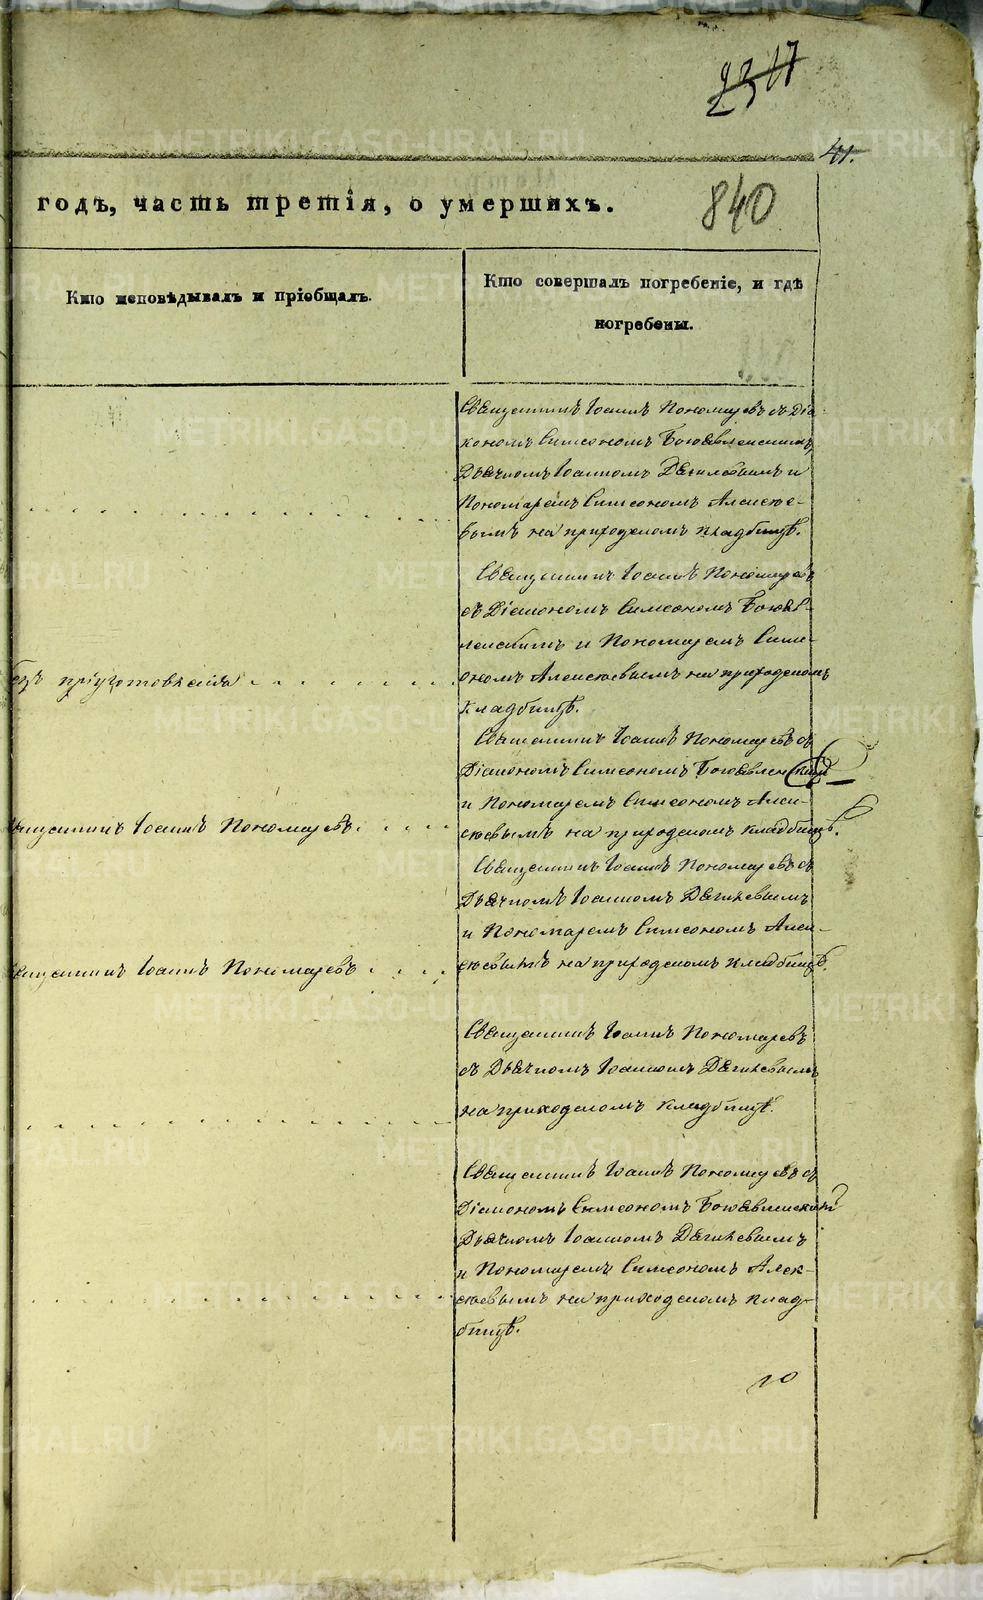 41.
840
годъ, часть третія, о умершихъ.
Кто исповѣдывалъ и пріобщалъ.
Кто совершалъ погребеніе, и гдѣ
погребены.
Священникъ Іоаннъ Пономаревъ съ Діа
кономъ Симеономъ Богоявленскимъ,
Дьячкомъ Іоанномъ и
Пономаремъ Симеономъ Алексѣе-
вымъ на приходскомъ кладбищѣ.
Священникъ Іоаннъ Пономаревъ
съ Діакономъ Симеономъ Богояв-
ленскимъ и Пономаремъ Симе-
ономъ Алексѣевымъ на приходскомъ
кладбищѣ.
безъ пріуготовленія
Священникъ Іоаннъ Пономаревъ съ
Діакономъ Симеономъ Богоявленскимъ
и Пономаремъ Симеономъ Алек-
сѣевымъ на приходскомъ кладбищѣ.
вященникъ Іоаннъ Пономаревъ.
Священникъ Іоаннъ Пономаревъ съ
Дьячкомъ Іоанномъ
и Пономаремъ Симеономъ Алек-
сѣевымъ на приходскомъ кладбищѣ.
вященникъ Іоаннъ Пономаревъ
Священникъ Іоаннъ Пономаревъ
съ Дьячкомъ Іоанномъ
на приходскомъ кладбищѣ.
Священникъ Іоаннъ Пономаревъ съ
Діакономъ Симеономъ Богоявленскимъ
Дьячкомъ Іоанномъ
и Пономаремъ Симеономъ Алек-
сѣевымъ на приходскомъ клад-
бищѣ.
METRIKI.GASO-URAL.RU